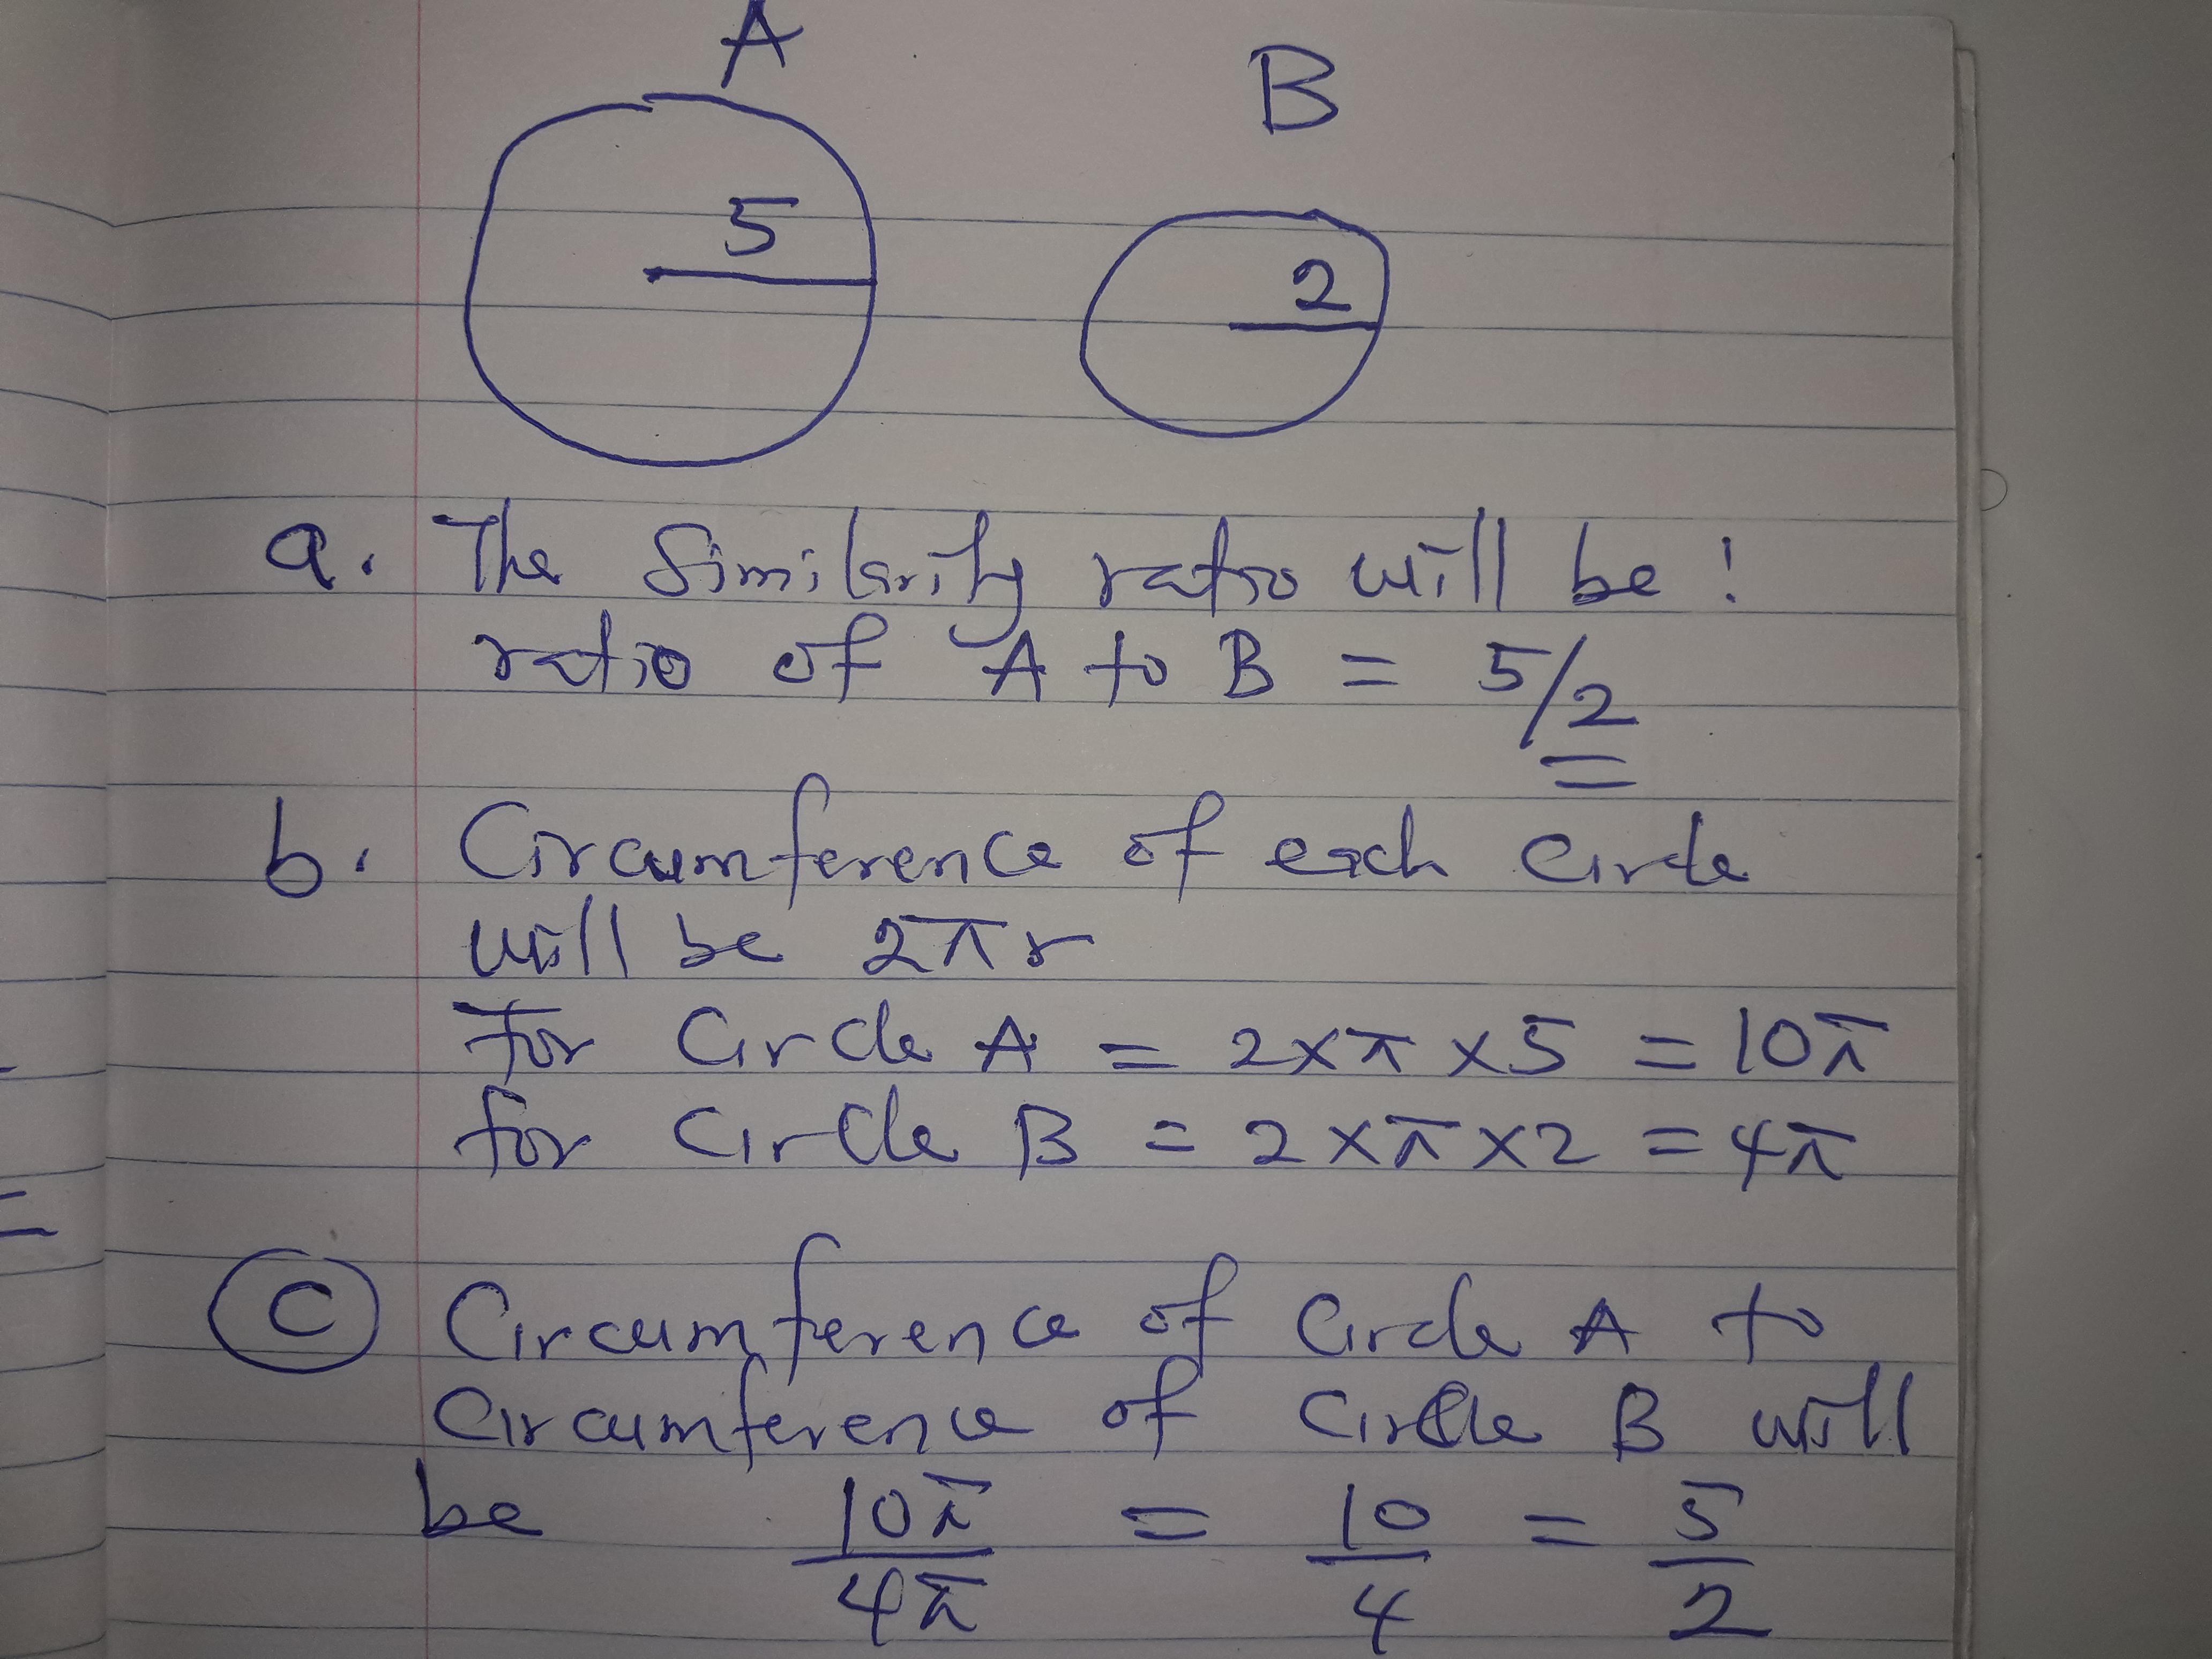 A
B
5
2
a. The Similarity ratio will be :
ratio of A to B = 5/2
b. Circumference of each Circle
will be 2πr
For Circle A = 2×π×5 = 10π
for Circle B = 2×π×2 = 4π
C Circumference of Circle A to
Circumference of Circle B will
be 10π/4π = 10/4 = 5/2